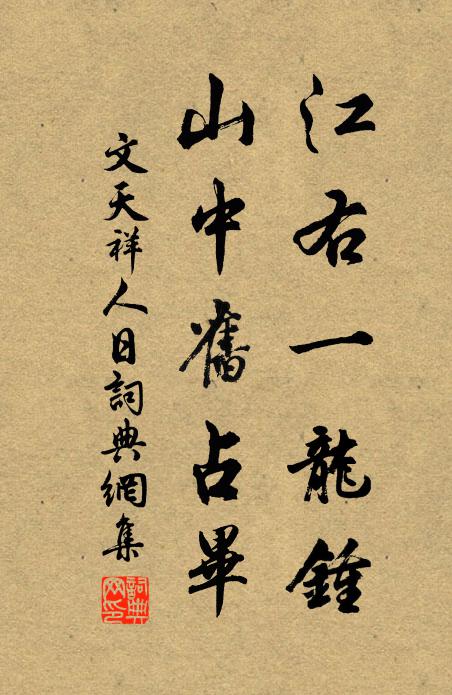 江右一龍鍾
山中舊占畢
文天祥人日詞典網集
詞典網印